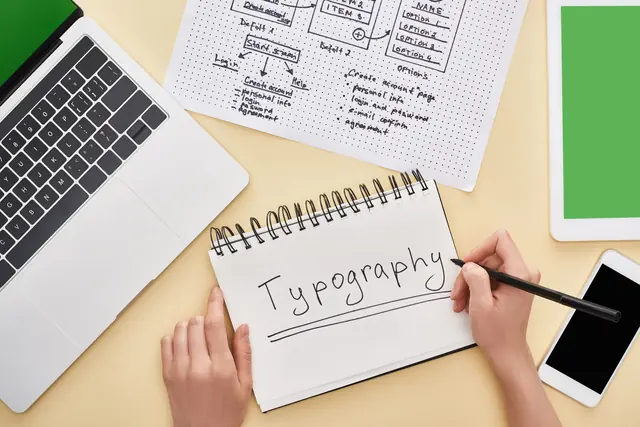 Create account
Default 1
Start screen
Login
Help
Create account
personal info
login
password
agreement
ITEM 2
ITEM 3
Default 2
NAME
OPTION 1
OPTION 2
OPTION 3
OPTION 4
OPTIONS
Create account page
personal info
login and password
e-mail confirm
agreement
Typography